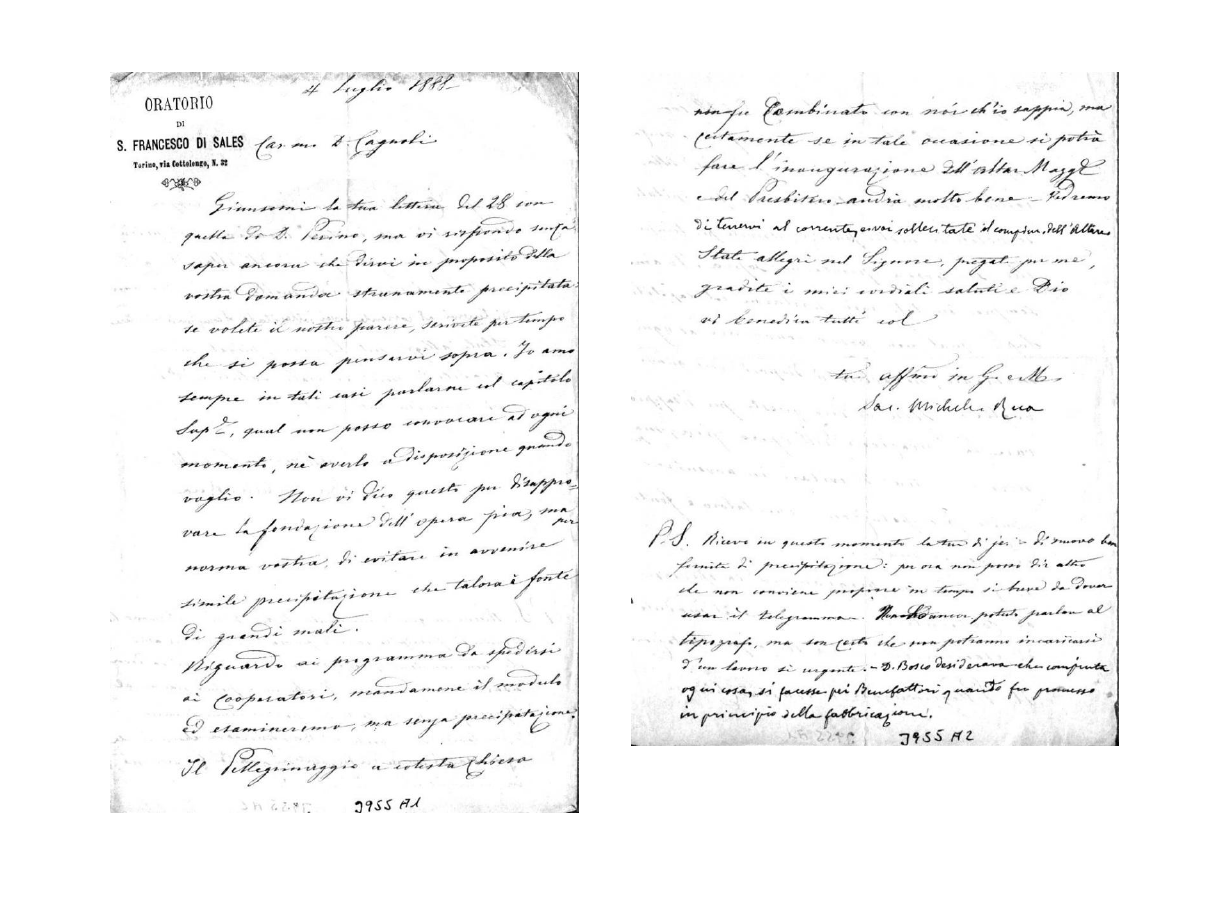 4 Luglio 1888
ORATORIO
DI
S. FRANCESCO DI SALES
Torino, via Cottolengo, N. 32
Car mo D. Cagnoli
Giunsemi la tua lettera del 28 con
quella di D. Perino, ma vi rispondo senza
saper ancora che dirvi in proposito della
vostra domanda stranamente precipitata:
se volete il nostro parere, scrivete per tempo
che si possa pensarvi sopra. Io amo
sempre in tali casi parlarne col capitolo
Sup.re, qual non posso convocare ad ogni
momento, nè averlo a disposizione quando
voglio. Non vi dico questo per disappro-
vare la fondazione dell' opera pia, ma
per
norma vostra, di evitare in avvenire
simile precipitazione che talora è fonte
di grandi mali.
Riguardo ai programma da spedirsi
ai cooperatori, mandamene il modulo
ed esamineremo, ma senza precipitazione.
Il Pellegrinaggio a cotesta Chiesa
J955 A1
non fu Combinato con noi ch'io sappia, ma
certamente se in tale occasione si potrà
fare l'inaugurazione dell'Altar Magg.e
e del Presbitero andrà molto bene - Vedremo
di tenervi al corrente, e voi sollecitate il compim. dell'Altare
State allegri nel Signore, pregate per me,
gradite i miei cordiali saluti e Dio
vi benedica tutti col
tuo affmo in G. e M.
Sac. Michele Rua
P. S. Ricevo in questo momento la tua di jeri - di nuovo ben
fornita di precipitazione: per ora non posso dir altro
che non conviene proporre in tempo si breve da dover
usar il telegramma. Non ho ancor potuto parlare al
tipografo, ma son certo che non potranno incaricarsi
d'un lavoro si urgente. - D. Bosco desiderava che compiuta
ogni cosa, si facesse pei Benefattori quanto fu promesso
in principio della fabbricazione.
J955 A2